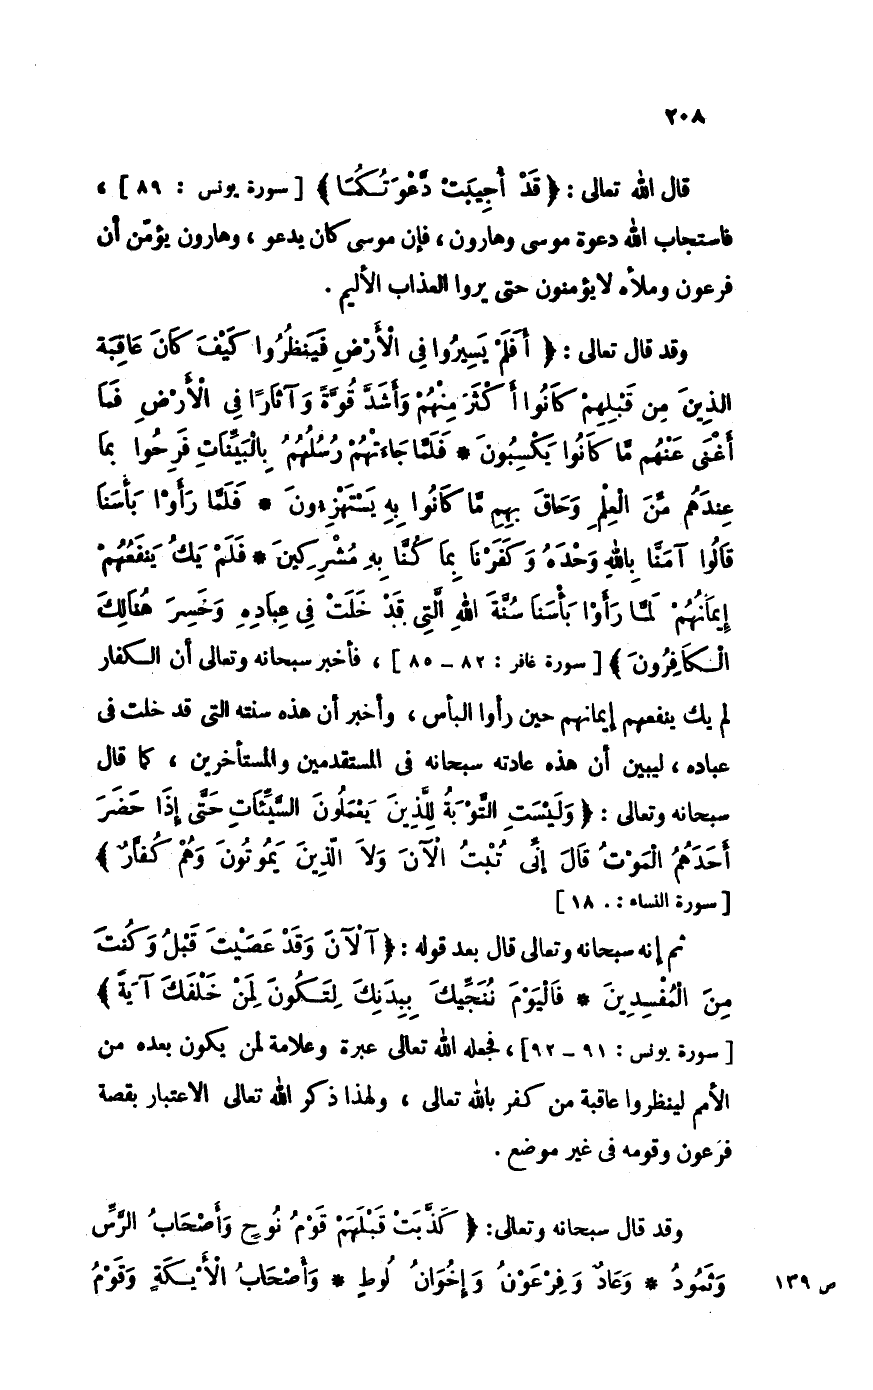 ٢٠٨
قال الله تعالى : ﴿ قَدْ أُجِيبَتْ دَّعْوَتُكُمَا ﴾ [ سورة يونس : ٨٩ ] ،
فاستجاب الله دعوة موسى وهارون ، فإن موسى كان يدعو ، وهارون يؤمّن أن
فرعون وملأه لايؤمنون حتى يروا العذاب الأليم .
وقد قال تعالى : ﴿ أَفَلَمْ يَسِيرُوا فِى الْأَرْضِ فَيَنظُرُوا كَيْفَ كَانَ عَاقِبَةُ
الذِينَ مِن قَبْلِهِمْ كَانُوا أَكْثَرَ مِنْهُمْ وَأَشَدَّ قُوَّةً وَآثَارًا فِى الْأَرْضِ فَمَا
أَغْنَى عَنْهُم مَّا كَانُوا يَكْسِبُونَ * فَلَمَّا جَاءَتْهُمْ رُسُلُهُمْ بِالْبَيِّنَاتِ فَرِحُوا بِمَا
عِندَهُم مِّنَ الْعِلْمِ وَحَاقَ بِهِم مَّا كَانُوا بِهِ يَسْتَهْزِءُونَ * فَلَمَّا رَأَوْا بَأْسَنَا
قَالُوا آمَنَّا بِاللهِ وَحْدَهُ وَكَفَرْنَا بِمَا كُنَّا بِهِ مُشْرِكِينَ * فَلَمْ يَكُ يَنفَعُهُمْ
إِيمَانُهُمْ لَمَّا رَأَوْا بَأْسَنَا سُنَّةَ اللهِ الَّتِى قَدْ خَلَتْ فِى عِبَادِهِ وَخَسِرَ هُنَالِكَ
الْكَافِرُونَ ﴾ [ سورة غافر : ٨٢ ــ ٨٥ ] ، فأخبر سبحانه وتعالى أن الكفار
لم يك ينفعهم إيمانهم حين رأوا البأس ، وأخبر أن هذه سنته التى قد خلت فى
عباده ، ليبين أن هذه عادته سبحانه فى المستقدمين والمستأخرين ، كما قال
سبحانه وتعالى : ﴿ وَلَيْسَتِ التَّوْبَةُ لِلَّذِينَ يَعْمَلُونَ السَّيِّئَاتِ حَتَّى إِذَا حَضَرَ
أَحَدَهُمُ الْمَوْتُ قَالَ إِنِّى تُبْتُ الْآنَ وَلاَ الَّذِينَ يَمُوتُونَ وَهُمْ كُفَّارٌ ﴾
[ سورة النساء : ١٨ ]
ثم إنه سبحانه وتعالى قال بعد قوله : ﴿ آلْآنَ وَقَدْ عَصَيْتَ قَبْلُ وَكُنتَ
مِنَ الْمُفْسِدِينَ * فَالْيَوْمَ نُنَجِّيكَ بِبَدَنِكَ لِتَكُونَ لِمَنْ خَلْفَكَ آيَةً ﴾
[ سورة يونس : ٩١ ــ ٩٢ ] ، فجعله الله تعالى عبرة وعلامة لمن يكون بعده من
الأمم لينظروا عاقبة من كفر بالله تعالى ، ولهذا ذكر الله تعالى الاعتبار بقصة
فرعون وقومه فى غير موضع .
وقد قال سبحانه وتعالى : ﴿ كَذَّبَتْ قَبْلَهُمْ قَوْمُ نُوحٍ وَأَصْحَابُ الرَّسِّ
وَثَمُودُ * وَعَادٌ وَفِرْعَوْنُ وَإِخْوَانُ لُوطٍ * وَأَصْحَابُ الْأَيْكَةِ وَقَوْمُ
ص ١٣٩